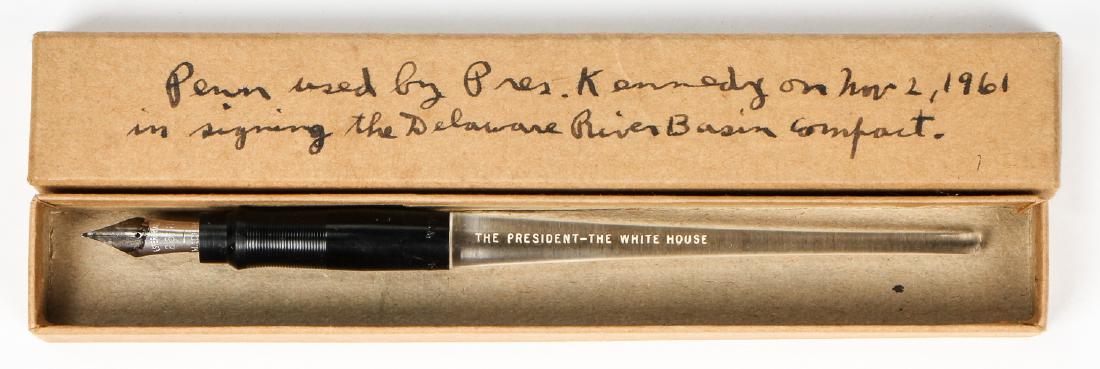 Penn used by Pres. Kennedy on Nov 2, 1961
in signing the Delaware River Basin compact.
THE PRESIDENT–THE WHITE HOUSE